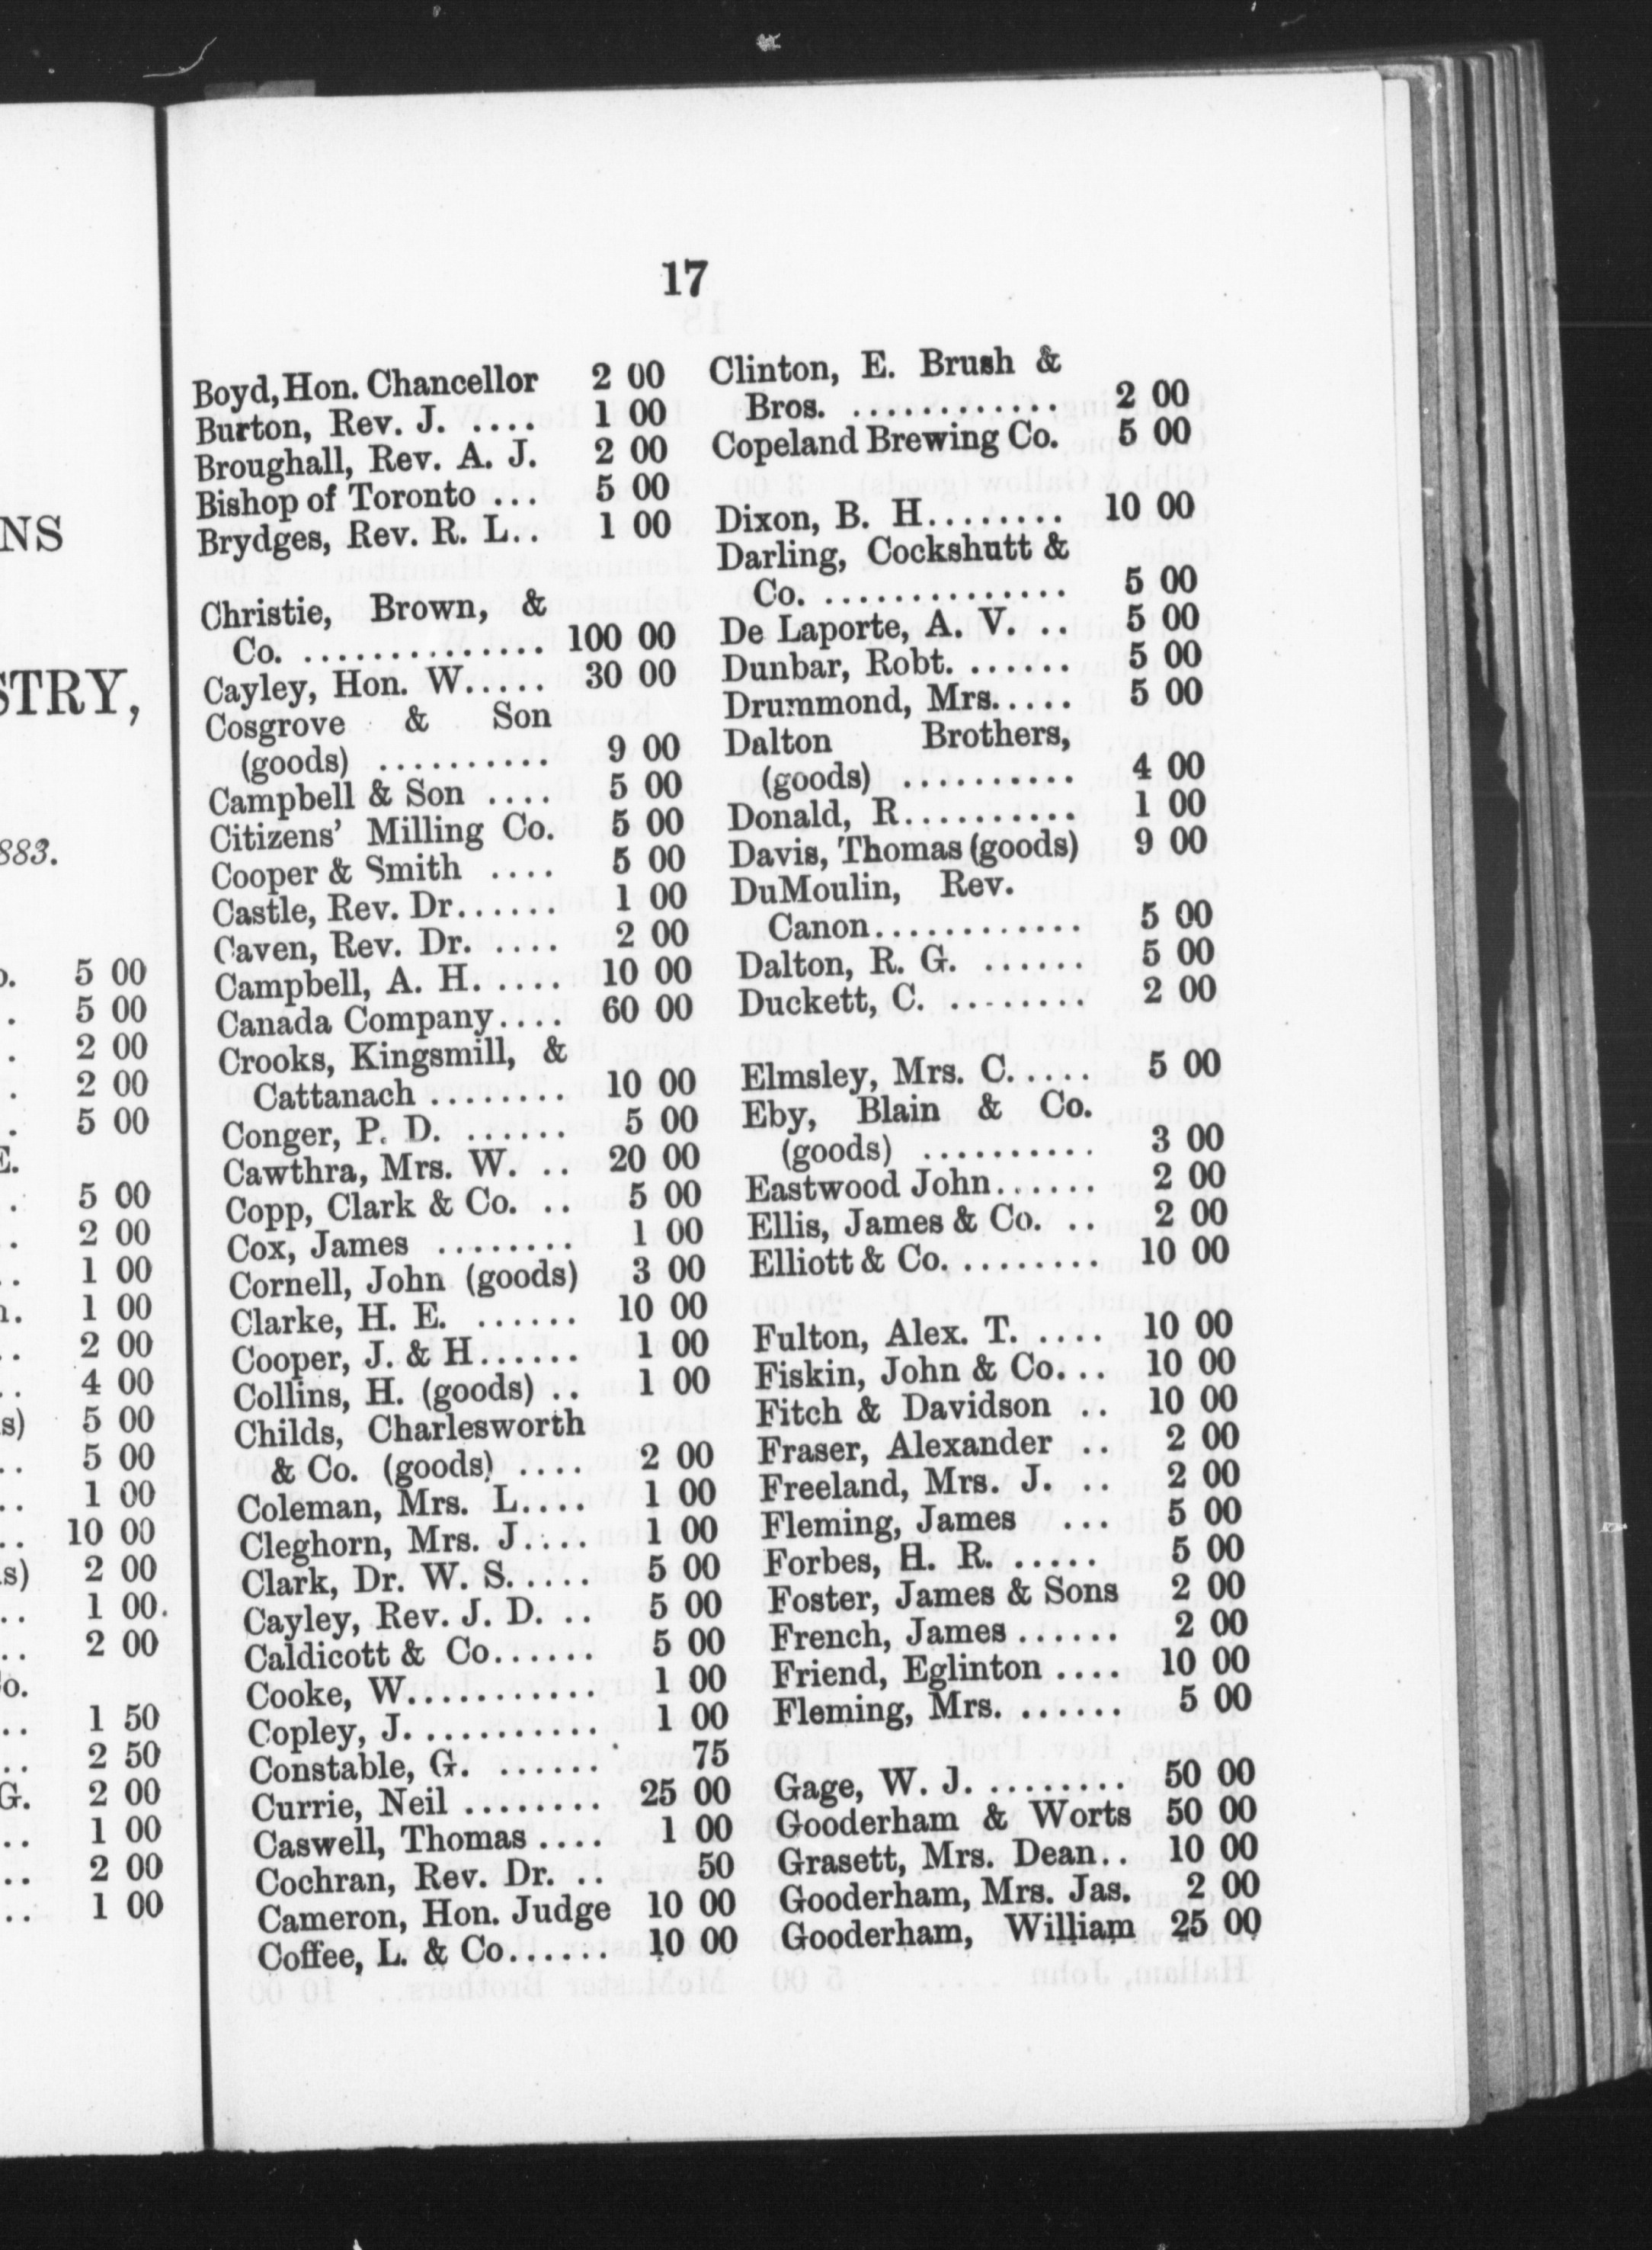 NS
STRY,
883.
o. 5 00
. 5 00
. 2 00
. 2 00
. 5 00
E.
. 5 00
.. 2 00
.. 1 00
n. 1 00
.. 2 00
.. 4 00
s) 5 00
.. 5 00
.. 1 00
.. 10 00
s) 2 00
.. 1 00.
.. 2 00
o.
.. 1 50
.. 2 50
G. 2 00
.. 1 00
.. 2 00
.. 1 00
17
Boyd, Hon. Chancellor 2 00
Burton, Rev. J. .... 1 00
Broughall, Rev. A. J. 2 00
Bishop of Toronto ... 5 00
Brydges, Rev. R. L.. 1 00
Christie, Brown, &
Co. .............. 100 00
Cayley, Hon. W..... 30 00
Cosgrove & Son
(goods) .......... 9 00
Campbell & Son .... 5 00
Citizens' Milling Co. 5 00
Cooper & Smith .... 5 00
Castle, Rev. Dr...... 1 00
Caven, Rev. Dr. .... 2 00
Campbell, A. H. .... 10 00
Canada Company.... 60 00
Crooks, Kingsmill, &
Cattanach ........ 10 00
Conger, P. D. ...... 5 00
Cawthra, Mrs. W. .. 20 00
Copp, Clark & Co. .. 5 00
Cox, James ........ 1 00
Cornell, John (goods) 3 00
Clarke, H. E. ...... 10 00
Cooper, J. & H...... 1 00
Collins, H. (goods) .. 1 00
Childs, Charlesworth
& Co. (goods) .... 2 00
Coleman, Mrs. L.... 1 00
Cleghorn, Mrs. J.... 1 00
Clark, Dr. W. S..... 5 00
Cayley, Rev. J. D. .. 5 00
Caldicott & Co...... 5 00
Cooke, W........... 1 00
Copley, J. .......... 1 00
Constable, G. ...... 75
Currie, Neil ........ 25 00
Caswell, Thomas .... 1 00
Cochran, Rev. Dr. .. 50
Cameron, Hon. Judge 10 00
Coffee, L. & Co...... 10 00
Clinton, E. Brush &
Bros. ............ 2 00
Copeland Brewing Co. 5 00
Dixon, B. H........ 10 00
Darling, Cockshutt &
Co. .............. 5 00
De Laporte, A. V. .. 5 00
Dunbar, Robt. ...... 5 00
Drummond, Mrs..... 5 00
Dalton Brothers,
(goods) .......... 4 00
Donald, R.......... 1 00
Davis, Thomas (goods) 9 00
DuMoulin, Rev.
Canon............ 5 00
Dalton, R. G. ...... 5 00
Duckett, C. ........ 2 00
Elmsley, Mrs. C..... 5 00
Eby, Blain & Co.
(goods) .......... 3 00
Eastwood John...... 2 00
Ellis, James & Co. .. 2 00
Elliott & Co. ........ 10 00
Fulton, Alex. T. .... 10 00
Fiskin, John & Co... 10 00
Fitch & Davidson .. 10 00
Fraser, Alexander .. 2 00
Freeland, Mrs. J. .. 2 00
Fleming, James ... 5 00
Forbes, H. R. ..... 5 00
Foster, James & Sons 2 00
French, James ...... 2 00
Friend, Eglinton .... 10 00
Fleming, Mrs. ...... 5 00
Gage, W. J. ........ 50 00
Gooderham & Worts 50 00
Grasett, Mrs. Dean.. 10 00
Gooderham, Mrs. Jas. 2 00
Gooderham, William 25 00